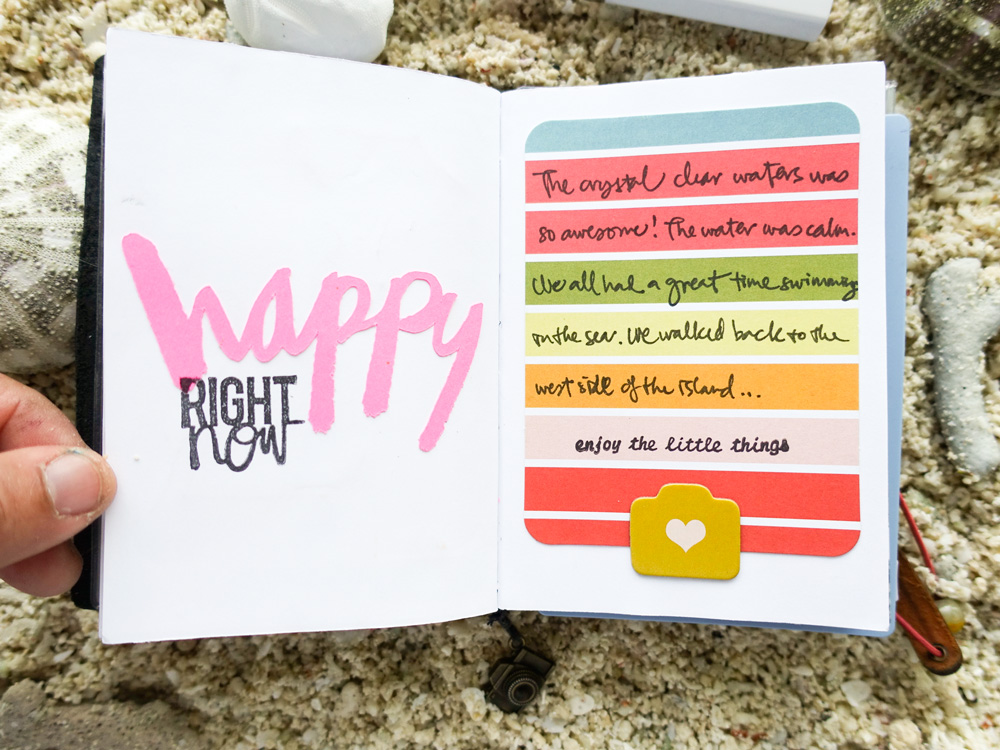 happy
RIGHT
now
The crystal clear waters was
so awesome! The water was calm.
We all had a great time swimming
on the sea. We walked back to the
west side of the island...
enjoy the little things